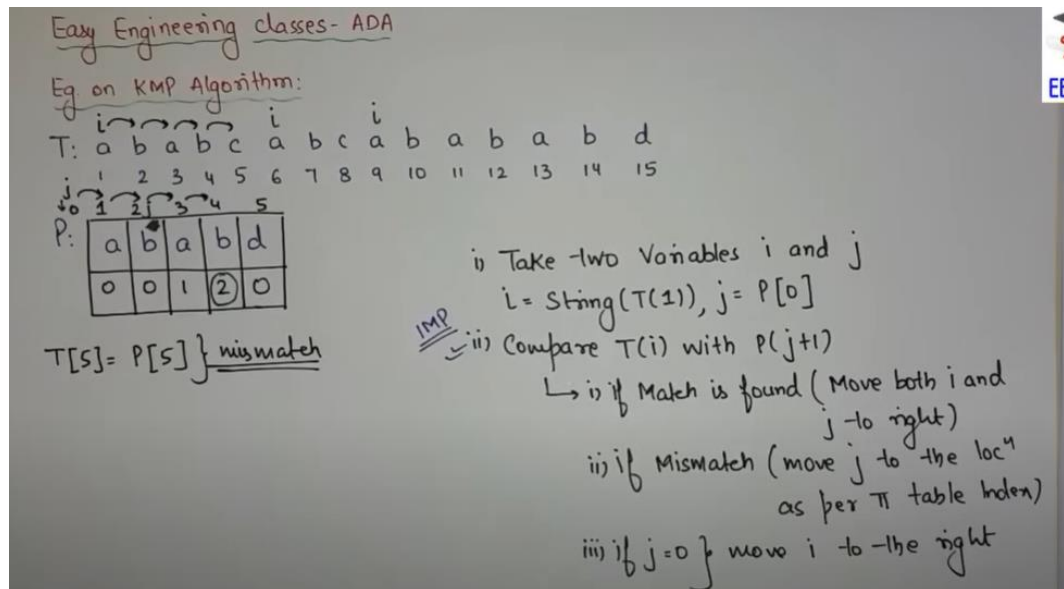 Easy Engineering classes - ADA
Eg. on KMP Algorithm:
i i i
T: a b a b c a b c a b a b a b d
1 2 3 4 5 6 7 8 9 10 11 12 13 14 15
j
0 1 2 3 4 5
P: a b a b d
0 0 1 2 0
T[5] = P[5] } mismatch
i) Take two Variables i and j
i = String(T(1)), j = P[0]
IMP ii) Compare T(i) with P(j+1)
↳ i) if Match is found (Move both i and
j to right)
ii) if Mismatch (move j to the locⁿ
as per π table Index)
iii) if j=0 } move i to the right